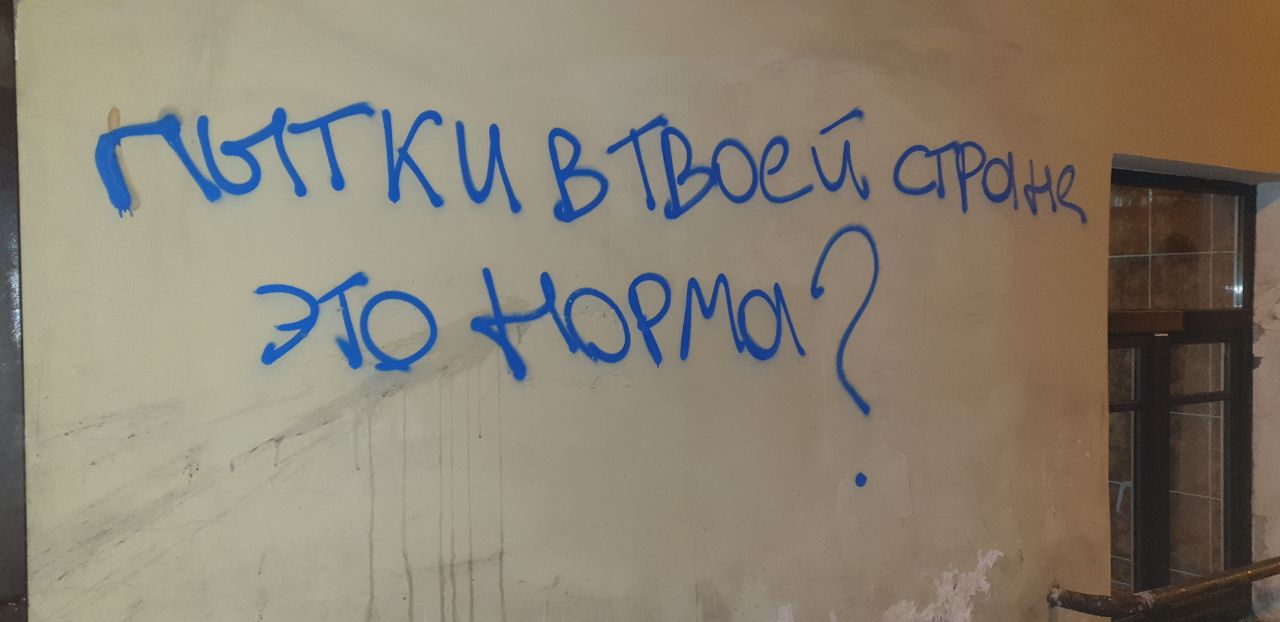 ПЫТКИ В ТВОЕЙ СТРАНЕ
ЭТО НОРМА?